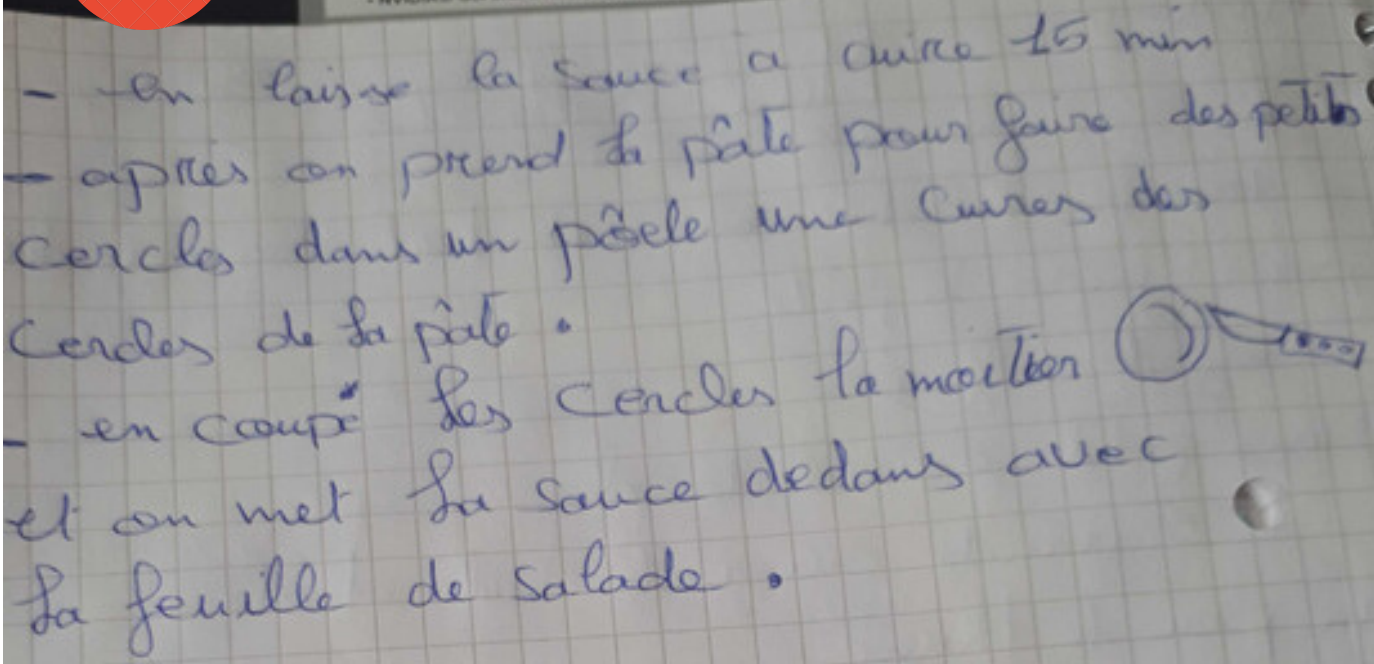 - en laisse la sauce a cuire 15 min
- aprres on prend la pâte pour faire des petits
cercles dans un pôele une cuires des
cercles de la pâte .
- en coupé les cercles la moitier
et on met la sauce dedans avec
la feuille de salade .